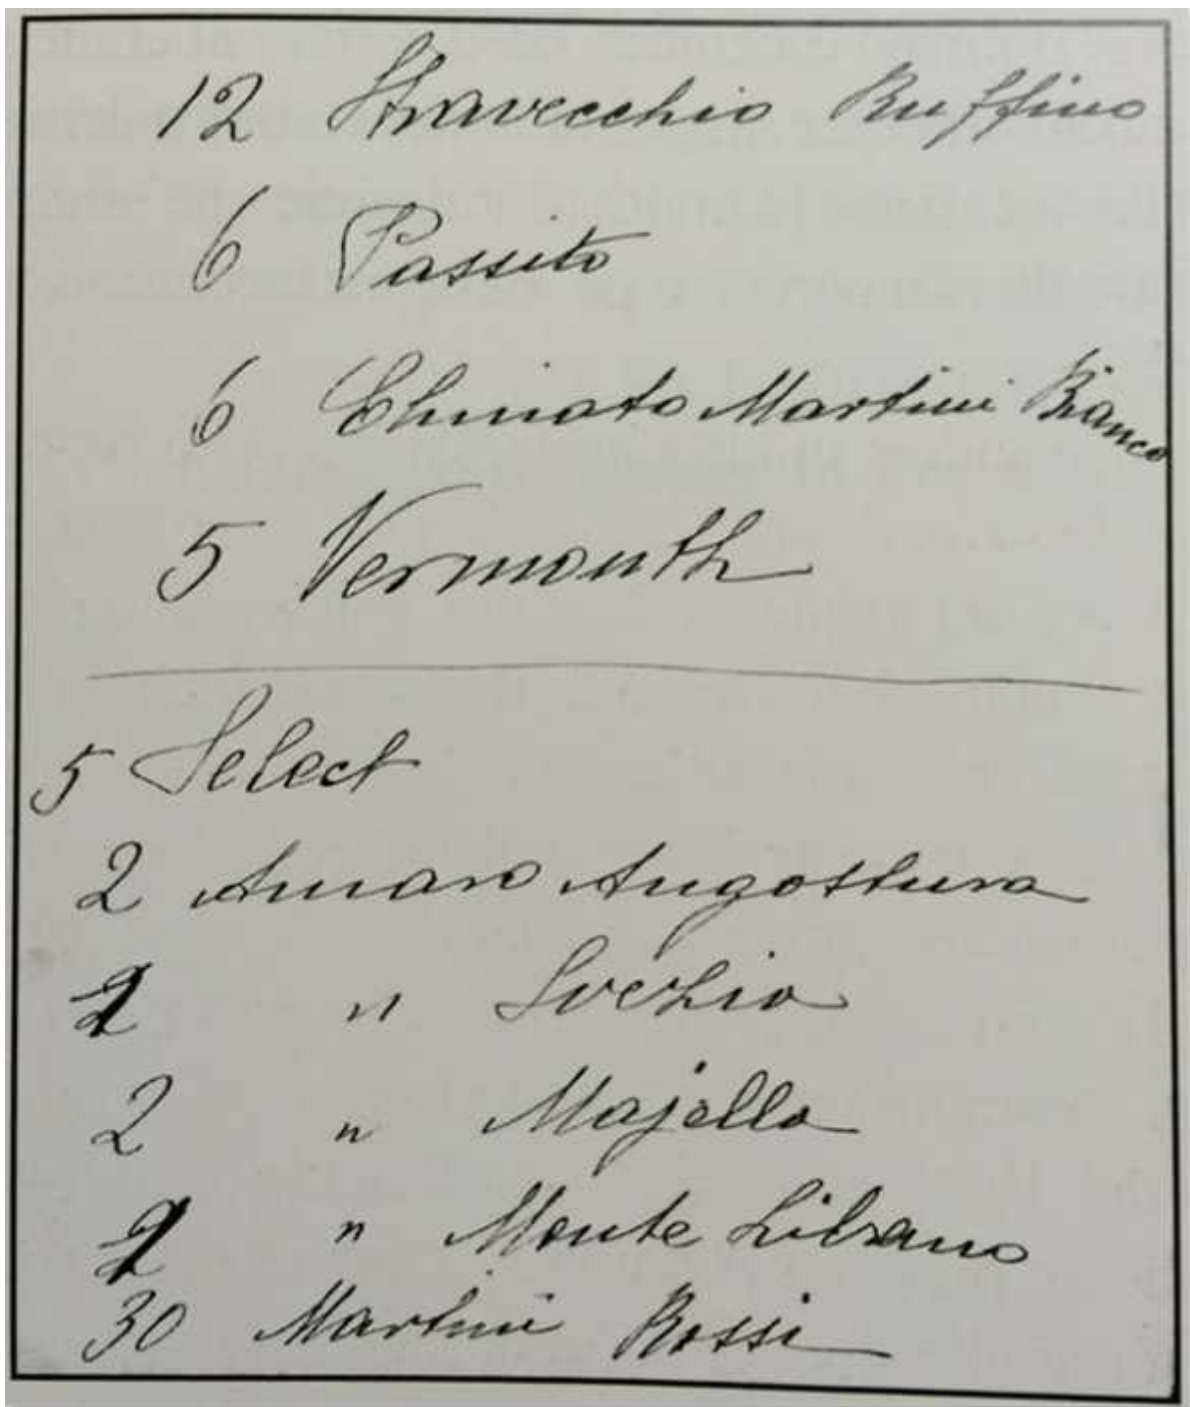 12 Stravecchio Ruffino
6 Passito
6 Chinato Martini Bianco
5 Vermouth
5 Select
2 Amaro Angostura
1 " Svezia
2 " Majella
1 " Monte Libano
30 Martini Rossi